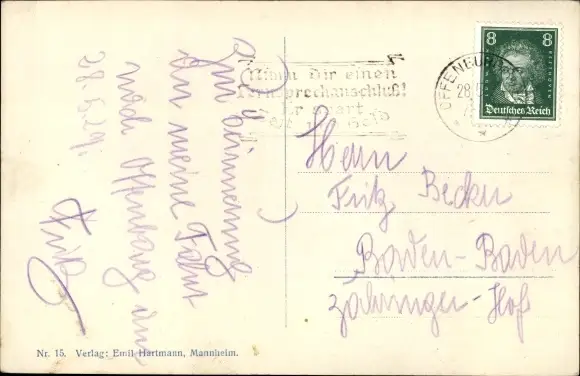 Zur Erinnerung
an meine Fahrt
nach Offenburg am
28.5.29.
Fritz
Nimm Dir einen
Fernsprechanschluß!
Er spart
Zeit und Geld
OFFENBURG
28.
8 8
LUDWIG BEETHOVEN
Deutsches Reich
Herrn
Fritz Becker
Baden-Baden
Zähringer-Hof
Nr. 15. Verlag: Emil Hartmann, Mannheim.